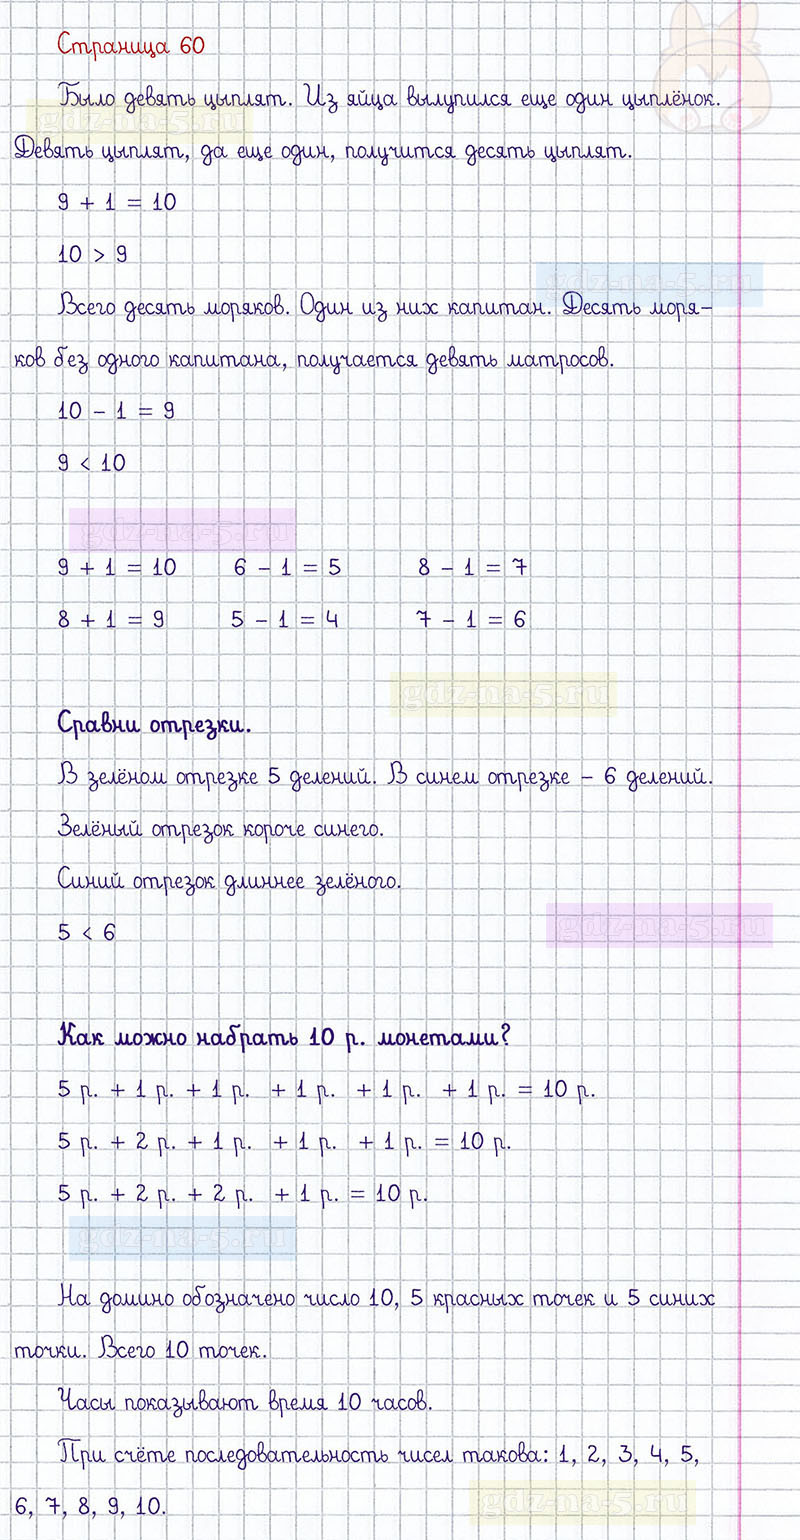 Страница 60
Было девять цыплят. Из яйца вылупился еще один цыплёнок.
gdz-na-5.ru
Девять цыплят, да еще один, получится десять цыплят.
9 + 1 = 10
10 > 9
gdz-na-5.ru
Всего десять моряков. Один из них капитан. Десять моря-
ков без одного капитана, получается девять матросов.
10 - 1 = 9
9 < 10
gdz-na-5.ru
9 + 1 = 10 6 - 1 = 5 8 - 1 = 7
8 + 1 = 9 5 - 1 = 4 7 - 1 = 6
gdz-na-5.ru
Сравни отрезки.
В зелёном отрезке 5 делений. В синем отрезке - 6 делений.
Зелёный отрезок короче синего.
Синий отрезок длиннее зелёного.
5 < 6
gdz-na-5.ru
Как можно набрать 10 р. монетами?
5 р. + 1 р. + 1 р. + 1 р. + 1 р. + 1 р. = 10 р.
5 р. + 2 р. + 1 р. + 1 р. + 1 р. = 10 р.
5 р. + 2 р. + 2 р. + 1 р. = 10 р.
gdz-na-5.ru
На домино обозначено число 10, 5 красных точек и 5 синих
точки. Всего 10 точек.
Часы показывают время 10 часов.
При счёте последовательность чисел такова: 1, 2, 3, 4, 5,
6, 7, 8, 9, 10.
gdz-na-5.ru